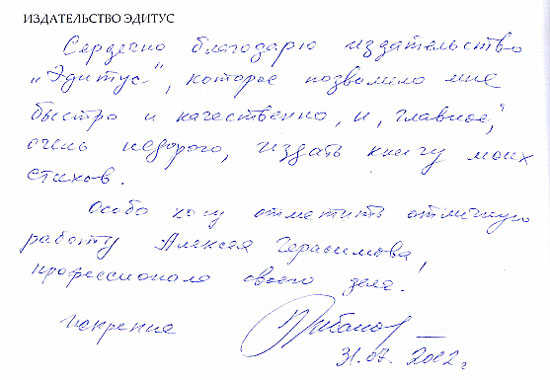 ИЗДАТЕЛЬСТВО ЭДИТУС
Сердечно благодарю издательство
„Эдитус", которое позволило мне
быстро и качественно, и, главное,
очень недорого, издать книгу моих
стихов.
Особо хочу отметить отличную
работу Алексея Герасимова,
профессионала своего дела.
Искренне
31.07.2012г